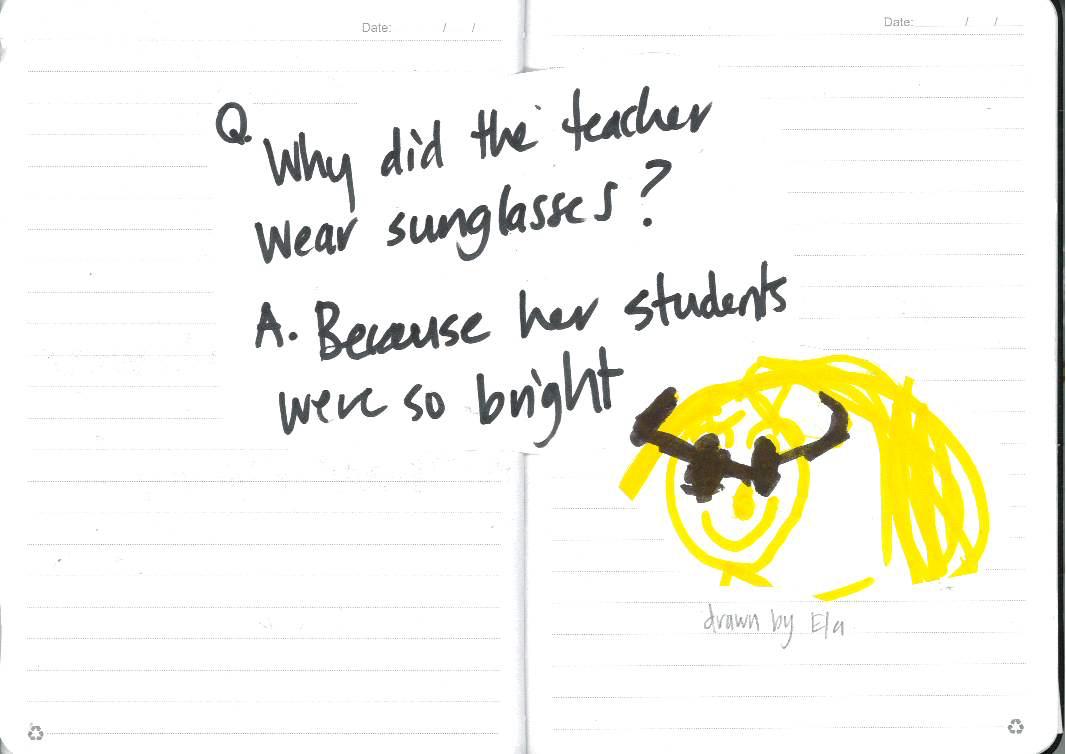 Date: / /
Date: / /
Q. Why did the teacher
wear sunglasses?
A. Because her students
were so bright
drawn by Ela